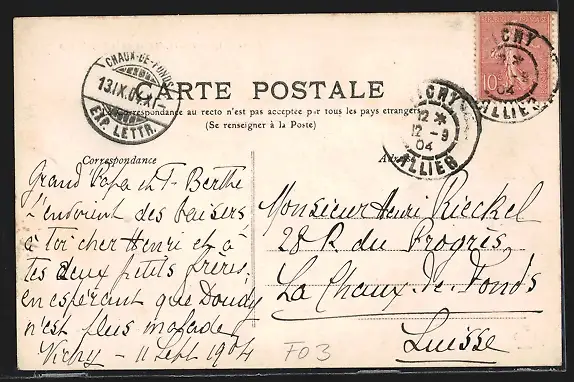 CHAUX-DE-FONDS
13.IX.04.XI-
EXP. LETTR.
VICHY
12 *
12 - 9
04
ALLIER
REPUBLIQUE FRANCAISE
10
CARTE POSTALE
Correspondance au recto n'est pas acceptée par tous les pays étrangers
(Se renseigner à la Poste)
Correspondance
Grand Papa et T. Berthe
t'envoient des baisers
à toi cher Henri et à
tes deux petits frères,
en espérant que Doudy
n'est plus malade
Vichy - 11 Sept. 1904
Adresse
Monsieur Henri Rieckel
28 R. du Progrès
La Chaux-de-Fonds
Suisse
F03